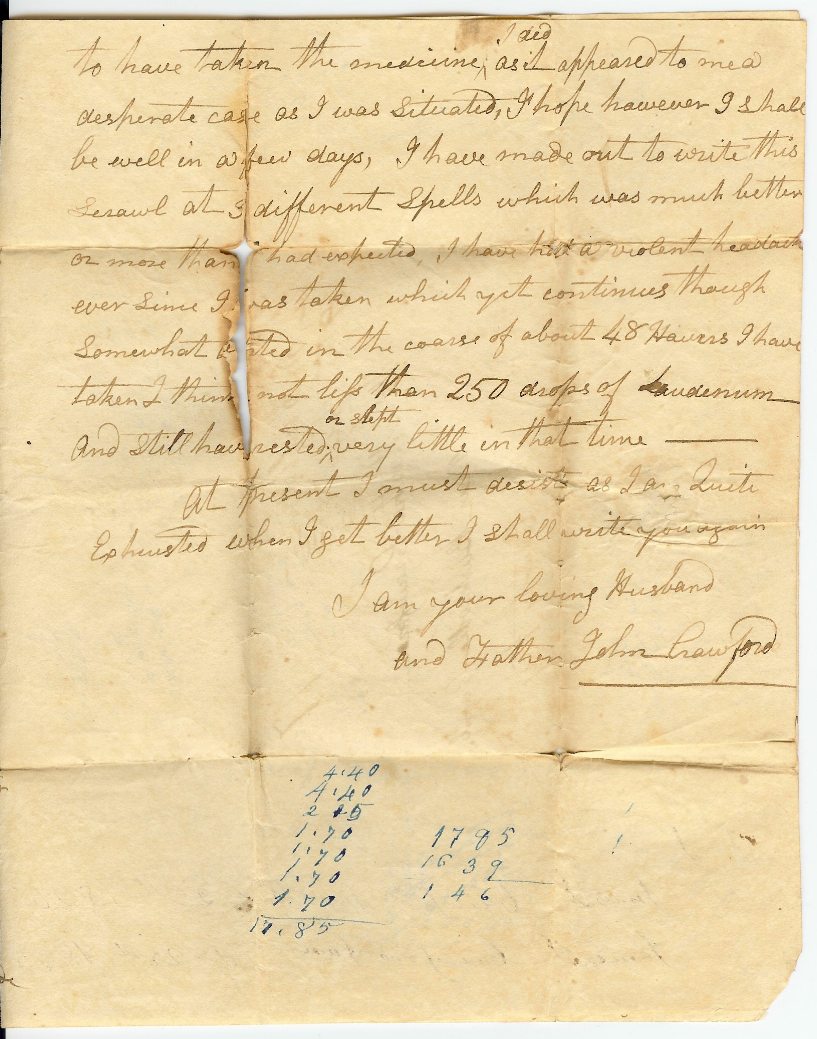 I did
to have taken the medicine, as it appeared to me a
desperate case as I was situated, I hope however I shall
be well in a few days, I have made out to write this
scrawl at 3 different Spells which was much better
or more than I had expected, I have had a violent headach
ever since I was taken which yet continues though
Somewhat in the coarse of about 48 Howers I have
taken I think not less than 250 drops of Laudenum
or slept
And still have rested, very little in that time
At present I must desist as I am Quite
Exhusted when I get better I shall write you again
I am your loving Husband
and Father John Crawford
4.40
4.40
2 15
1.70
1.70
1.70
1.70
17.85
1785
1639
146